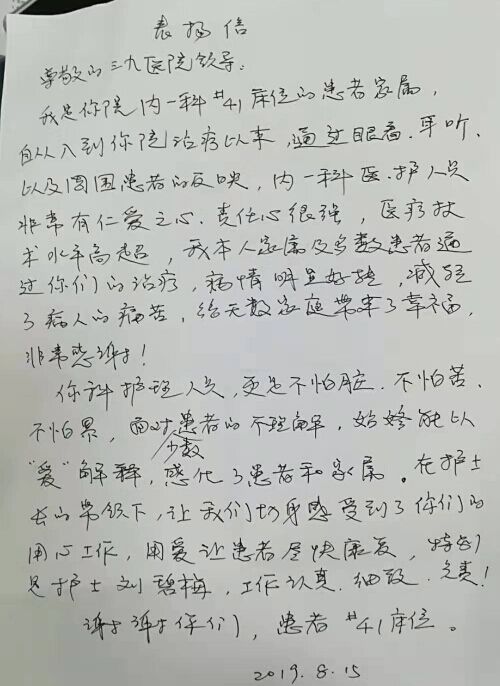 表扬信
尊敬的三九医院领导:
我是你院内一科#41床位的患者家属,
自从入到你院治疗以来,通过眼看.耳听.
以及周围患者的反映,内一科医.护人员
非常有仁爱之心.责任心很强,医疗技
术水平高超,我本人家属及多数患者通
过你们的治疗,病情明显好转,减轻
了病人的痛苦,给无数家庭带来了幸福,
非常感谢!
你科护理人员,更是不怕脏.不怕苦.
不怕累,面对少数患者的不理解,始终能以
“爱”解释,感化了患者和家属。在护士
长的带领下,让我们切身感受到了你们的
用心工作,用爱让患者尽快康复,特别
是护士刘碧梅,工作认真.细致.负责!
谢谢你们,患者#41床位。
2019.8.15